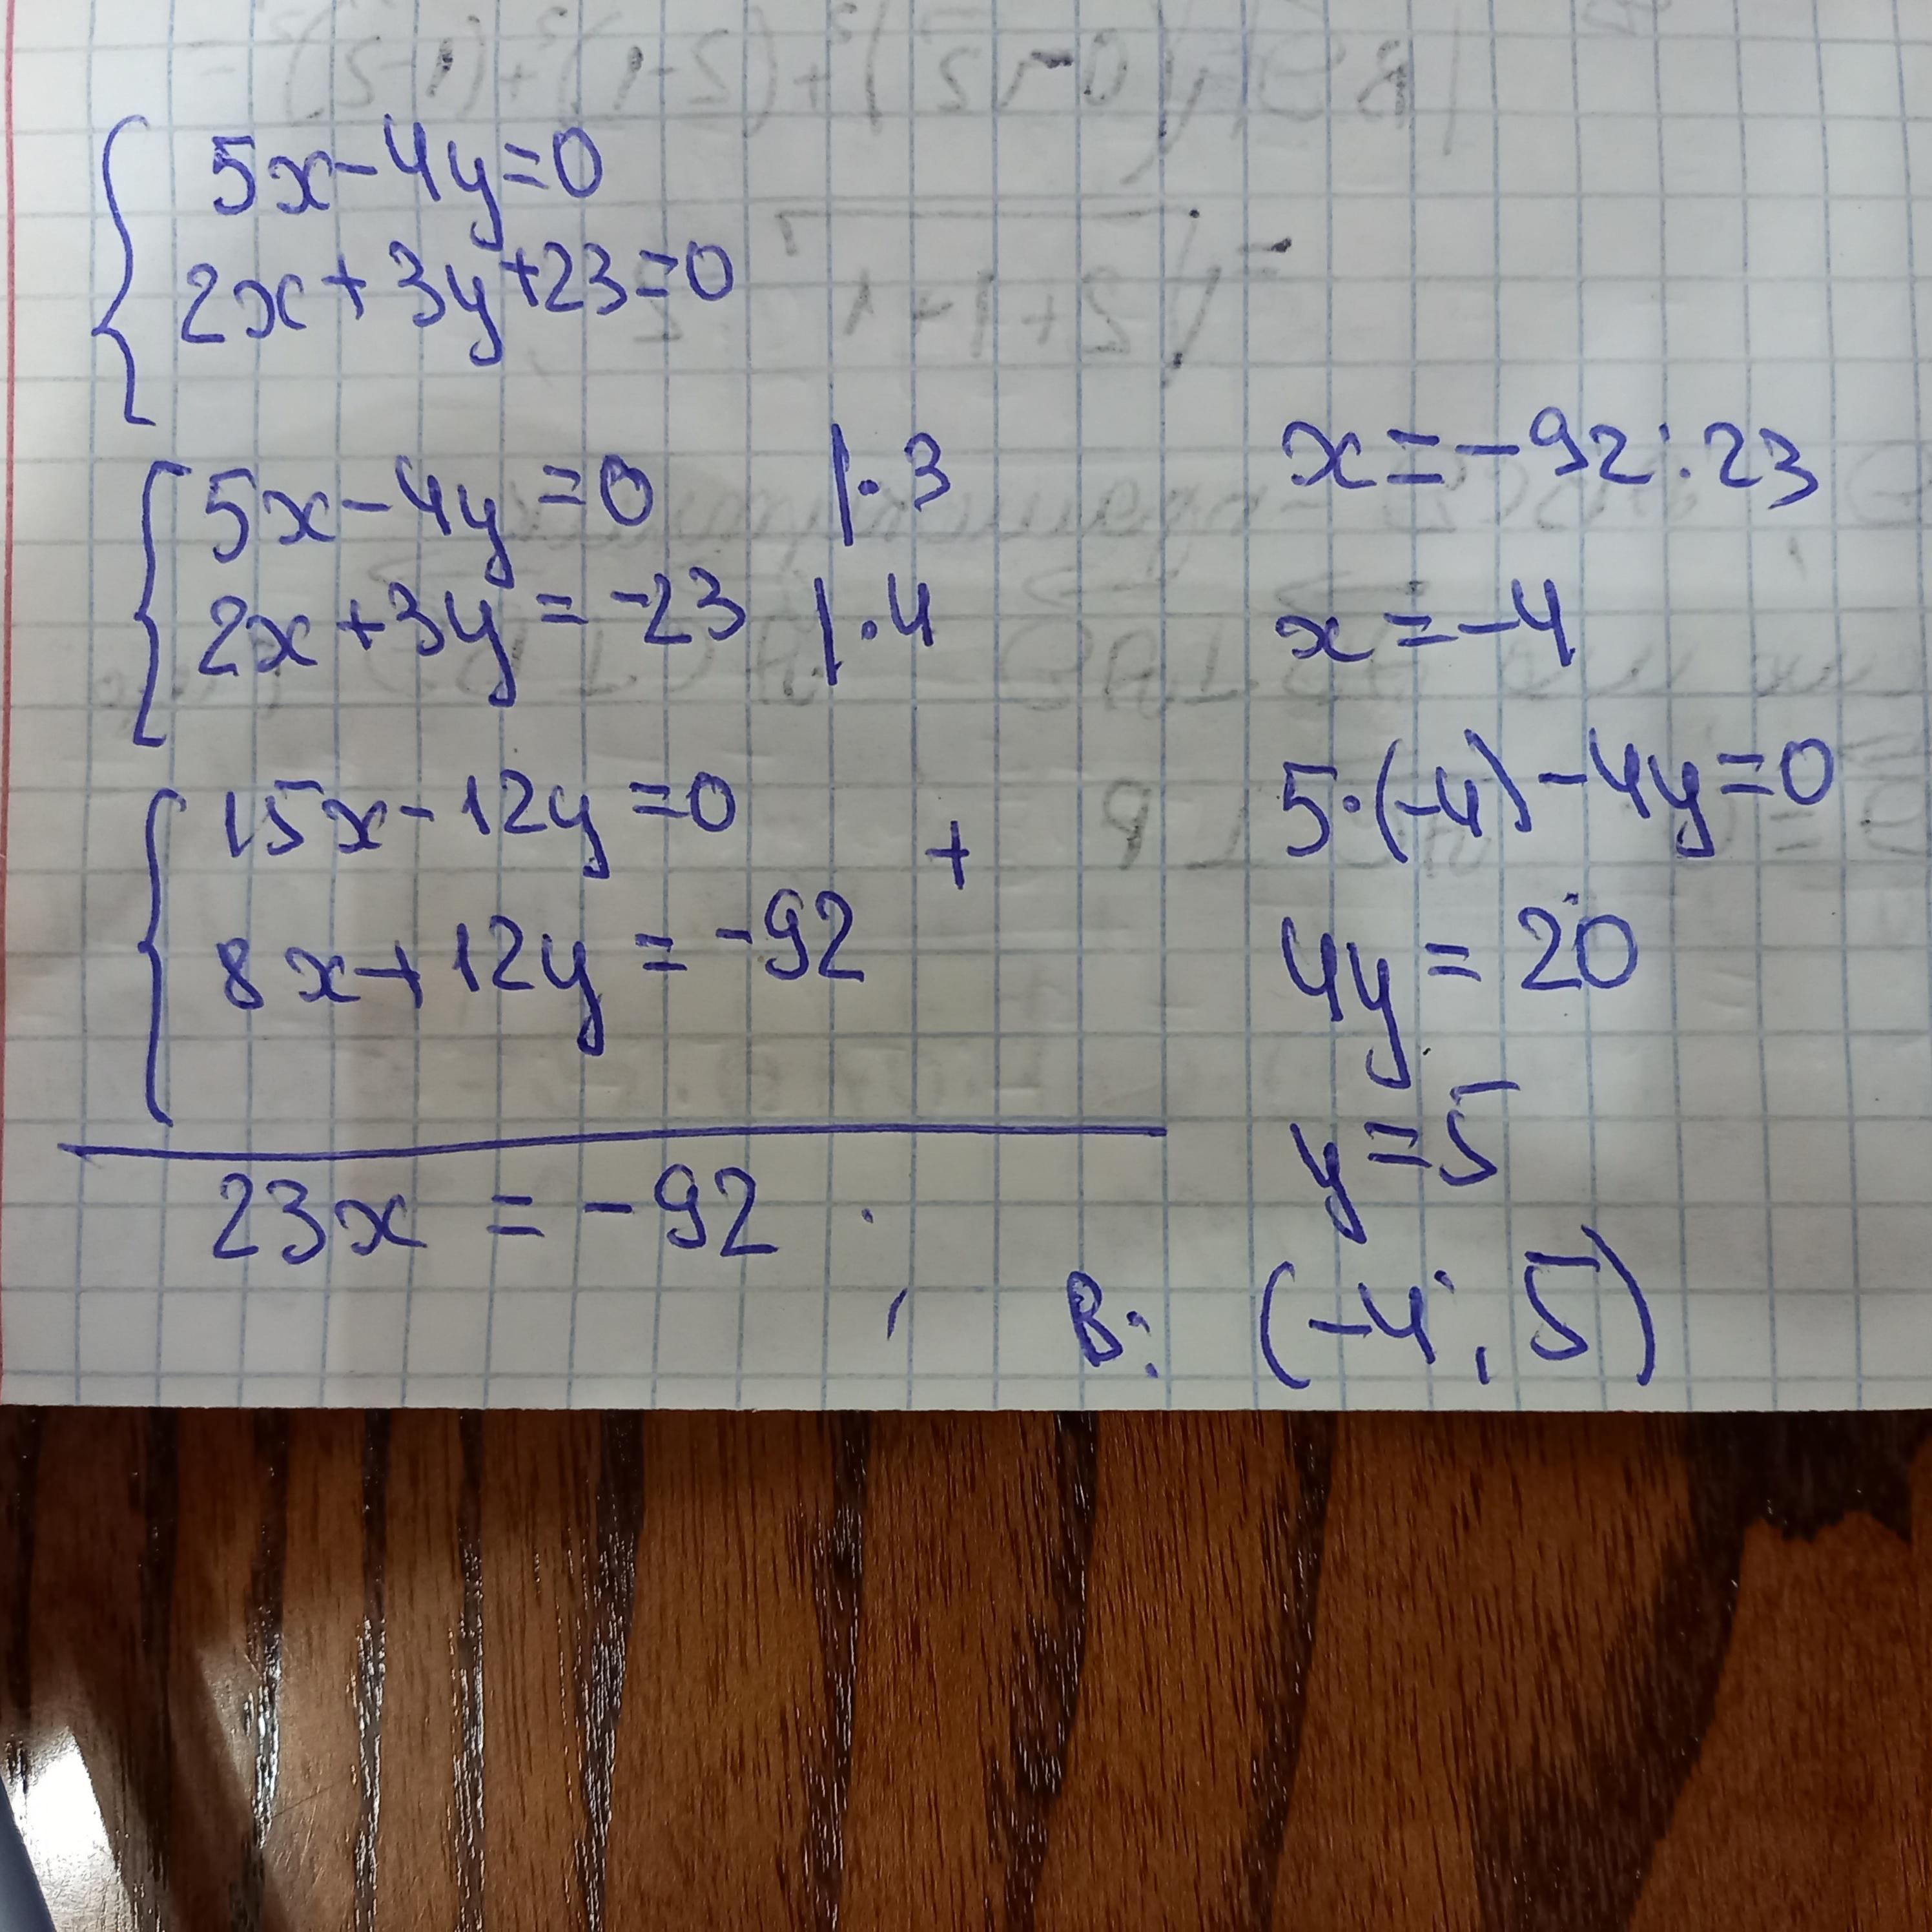 5x-4y=0
2x+3y+23=0
5x-4y=0 |·3
2x+3y=-23 |·4
15x-12y=0
+
8x+12y=-92
23x=-92
x=-92:23
x=-4
5·(-4)-4y=0
4y=20
y=5
В: (-4; 5)